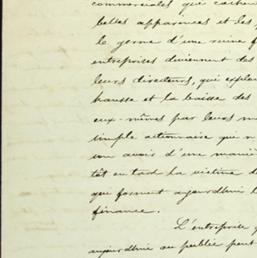 commerciales que cachent
belles apparences et les
le germe d'une ruine f
entreprises deviennent des
leurs directeurs, qui
hausse et la baisse des
eux-mêmes par leurs m
simple actionnaire qui n
une avais d'une maniè
tôt ou tard la victime d
que forment aujourd'hui l
finance.
L'entreprise q
aujourd'hui au public peut